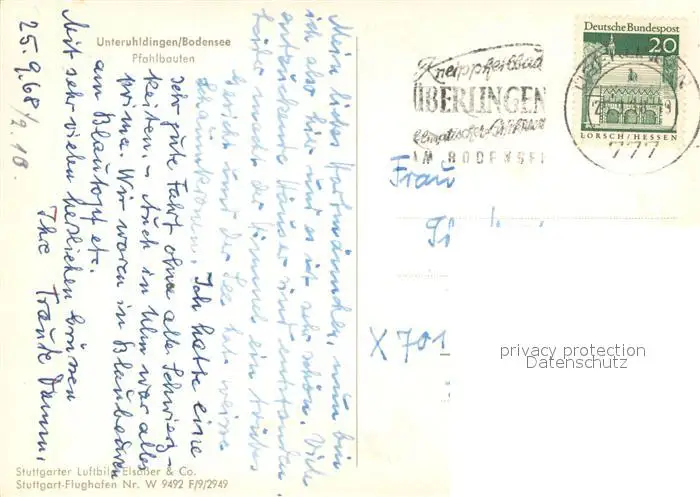 Unteruhldingen/Bodensee
Pfahlbauten
25.9.68/2.10.
Mein liebes Hartmännchen, nun bin
ich also hier und es ist sehr schön. Viele
entzückende Häuser sind entstanden.
Leider ist der Himmel ein trübes
und der See hat weisse
Schaumkronen. Ich hatte eine
sehr gute Fahrt ohne alle Schwierig-
keiten. – Auch in Ulm war alles
prima. Wir waren in Blaubeuren
am Blautopf etc.
Mit sehr vielen herzlichen Grüssen
Ihre Traute
Stuttgarter Luftbild Elsäßer & Co.
Stuttgart-Flughafen Nr. W 9492 F/9/2949
Kneippheilbad
ÜBERLINGEN
IM BODENSEE
Deutsche Bundespost
20
LORSCH/HESSEN
777
Frau
X 701
privacy protection
Datenschutz